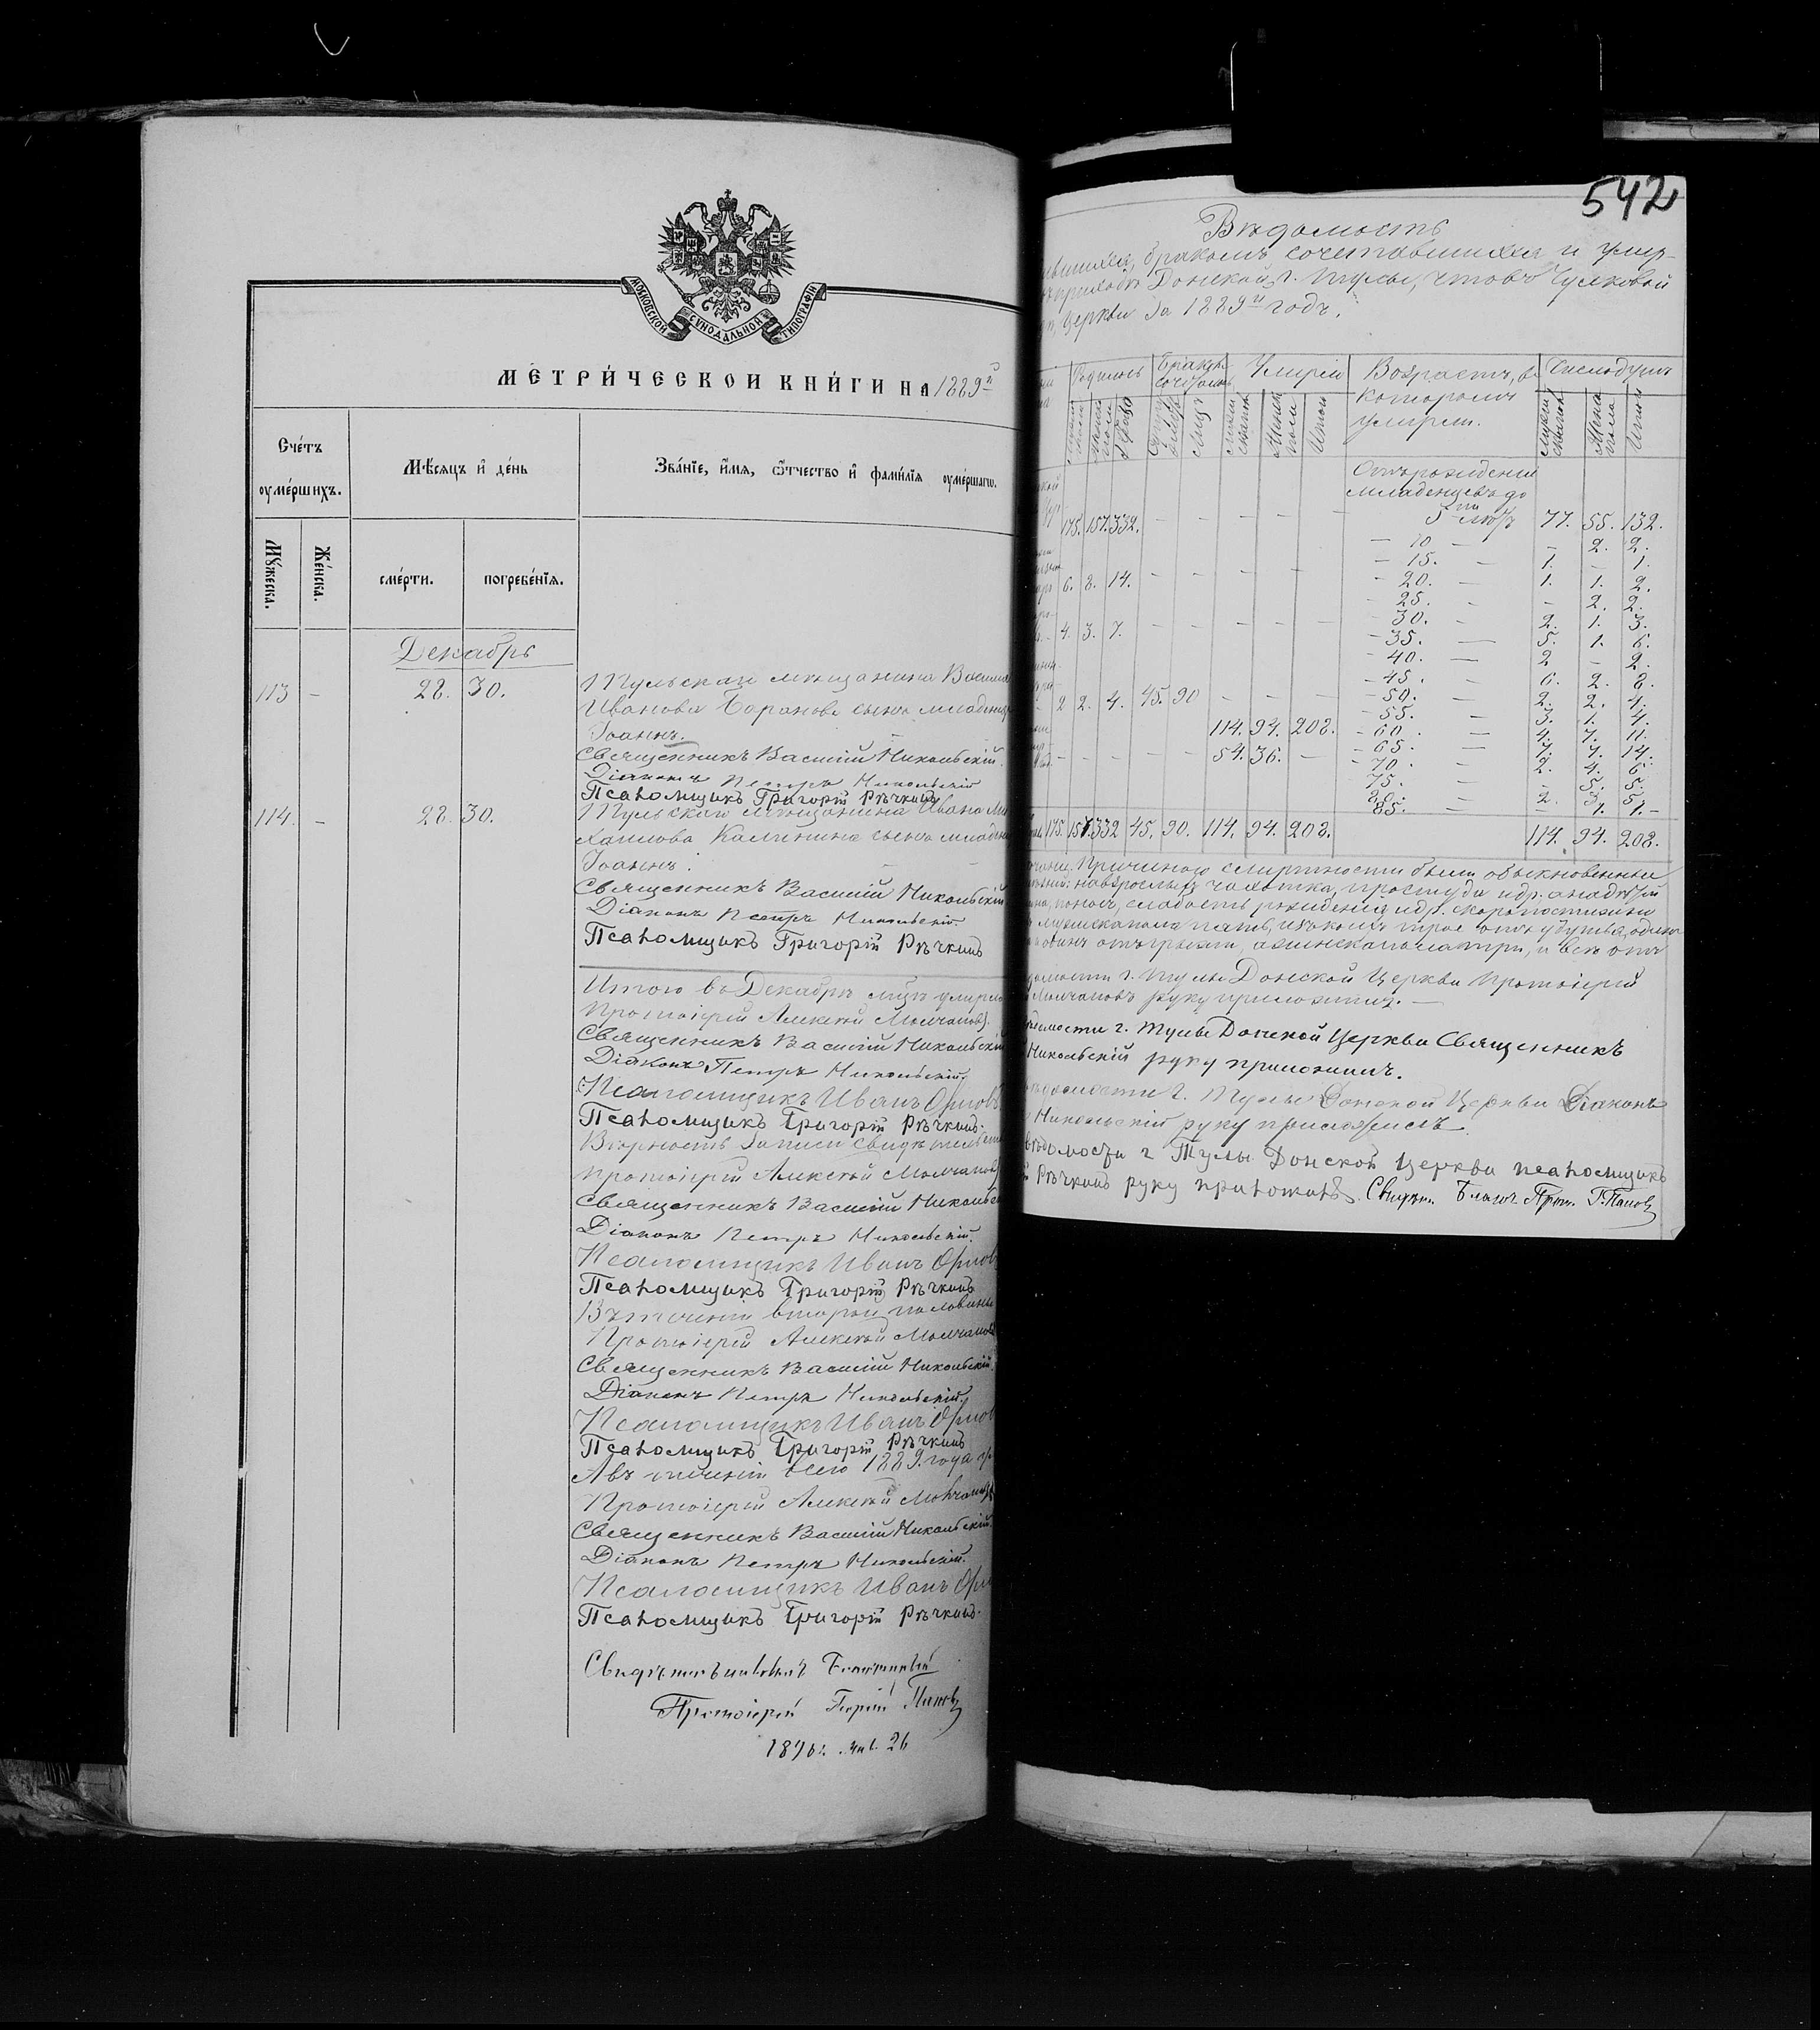 542
МОСКОВСКОЙ СѴНОДАЛЬНОЙ ТИПОГРАФІИ
МЕТРИ́ЧЕСКОЙ КНИ́ГИ НА 1889й
Сче́тъ оуме́ршихъ.
Мѣ́сяцъ и҆ де́нь
Зва́нїе, и҆́мѧ, ѻ҆́тчество и҆ фами́лїѧ оуме́ршагѡ.
Мꙋ́жеска.
Же́нска.
сме́рти.
погребе́нїѧ.
Декабрь
113 – 28. 30.
Тульскаго мѣщанина Васил
Иванова Баранова сынъ младенецъ
Іоаннъ.
Священникъ Василій Никольскій.
Діаконъ Петръ Никольскій
Псаломщикъ Григорій Рѣчкинъ
114. – 28. 30.
Тульскаго мѣщанина Ивана Ми
хаилова Калинина сынъ младен
Іоаннъ.
Священникъ Василій Никольскій
Діаконъ Петръ Никольскій.
Псаломщикъ Григорій Рѣчкинъ
Итого въ Декабрѣ м-цѣ умерл
Протоіерей Алексѣй Молчановъ.
Священникъ Василій Никольскій
Діаконъ Петръ Никольскій.
Псаломщикъ Иванъ Орловъ
Псаломщикъ Григорій Рѣчкинъ.
Вѣрность записи свидѣтельств
Протоіерей Алексѣй Молчановъ
Священникъ Василій Никольск
Діаконъ Петръ Никольскій.
Псаломщикъ Иванъ Орловъ
Псаломщикъ Григорій Рѣчкинъ
Въ теченіи второй половины
Протоіерей Алексѣй Молчановъ
Священникъ Василій Никольскій.
Діаконъ Петръ Никольскій.
Псаломщикъ Иванъ Орлов
Псаломщикъ Григорій Рѣчкинъ
А въ теченіи всего 1889. года
Протоіерей Алексѣй Молчановъ
Священникъ Василій Никольскій.
Діаконъ Петръ Никольскій.
Псаломщикъ Иванъ Орл
Псаломщикъ Григорій Рѣчкинъ.
Свидѣтельствовалъ Благочинный
Протоіерей Панов
26
Вѣдомость
бракомъ сочетавшихся и умер-
приходѣ Донской г. Тулы, что въ Чулковой
церкви за 1889й годъ.
Родилось
Бракомъ сочетались
Умерли
Возрастъ, въ которомъ умерли.
Число душъ
Отъ рожденія
младенцевъ до
5 ти лѣтъ 77. 55. 132.
175. 157. 332. – – – – – –
– 10 – – 2. 2.
– 15. – 1. – 1.
6. 8. 14. – – – – –
– 20. – 1. 1. 2.
– 25. – – 2. 2.
– 30. – 2. 1. 3.
4. 3. 7. – – – – – –
– 35. – 5. 1. 6.
– 40. – 2 – 2.
– 45. – 6. 2. 8.
2 2. 4. 45. 90 – – –
– 50. – 2. 2. 4.
– 55. – 3. 1. 4.
114. 94. 208.
– 60. – 4. 7. 11.
54. 36. –
– 65. – 7. 7. 14.
– 70. – 2. 4. 6.
75. – – 5. 5.
80. – 2. 3. 5.
85. – – 1. 1. –
175. 157. 332 45. 90. 114. 94. 208. 114. 94. 208.
Причиною смертности были обыкновенныя
на взрослыхъ чахотка, простуда и др. а на дѣтей
поносъ, слабость рожденія и др. скоропостижно
мужеска пола пять, изъ коихъ трое отъ удушья, одинъ
отъ грыжи, а женска пола три, и всѣ отъ
г. Тулы Донской Церкви Протоіерей
Молчановъ руку приложилъ. –
г. Тулы Донской Церкви Священникъ
Никольскій руку приложилъ.
г. Тулы Донской Церкви Діаконъ
Никольскій руку приложилъ.
г Тулы Донской Церкви псаломщикъ
Рѣчкинъ руку приложилъ. Свидѣт. Благоч. Прот. Г. Панов